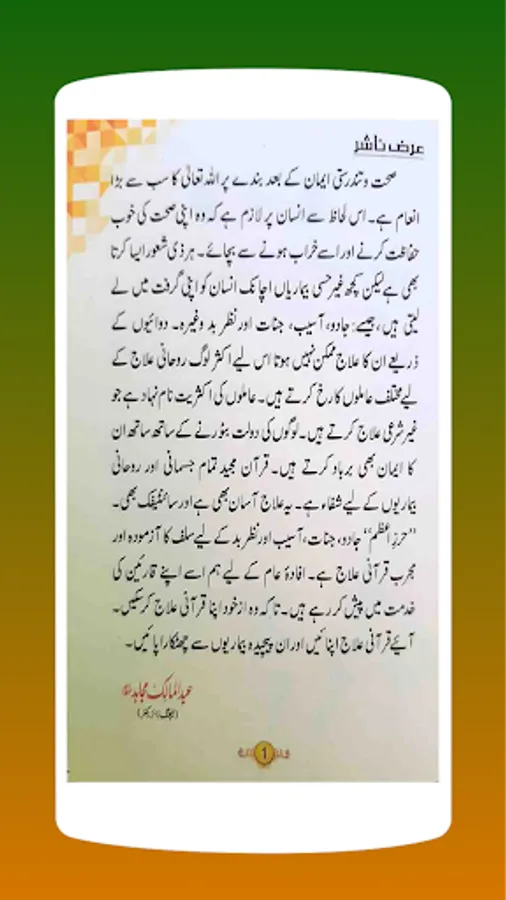 عرض ناشر
صحت و تندرستی ایمان کے بعد بندے پر اللہ تعالیٰ کا سب سے بڑا
انعام ہے۔ اس لحاظ سے انسان پر لازم ہے کہ وہ اپنی صحت کی خوب
حفاظت کرنے اور اسے خراب ہونے سے بچائے۔ ہر ذی شعور ایسا کرتا
بھی ہے لیکن کچھ غیر حسی بیماریاں اچانک انسان کو اپنی گرفت میں لے
لیتی ہیں، جیسے: جادو، آسیب، جنات اور نظر بد وغیرہ۔ دوائیوں کے
ذریعے ان کا علاج ممکن نہیں ہوتا اس لیے اکثر لوگ روحانی علاج کے
لیے مختلف عاملوں کا رخ کرتے ہیں۔ عاملوں کی اکثریت نام نہاد ہے جو
غیر شرعی علاج کرتے ہیں۔ لوگوں کی دولت بٹورنے کے ساتھ ساتھ ان
کا ایمان بھی برباد کرتے ہیں۔ قرآن مجید تمام جسمانی اور روحانی
بیماریوں کے لیے شفاء ہے۔ یہ علاج آسان بھی ہے اور سائنٹیفک بھی۔
”حرز اعظم“ جادو، جنات، آسیب اور نظر بد کے لیے سلف کا آزمودہ اور
مجرب قرآنی علاج ہے۔ افادۂ عام کے لیے ہم اسے اپنے قارئین کی
خدمت میں پیش کر رہے ہیں۔ تاکہ وہ از خود اپنا قرآنی علاج کرسکیں۔
آئیے قرآنی علاج اپنائیں اور ان پیچیدہ بیماریوں سے چھٹکارا پائیں۔
عبدالمالک مجاہد
1